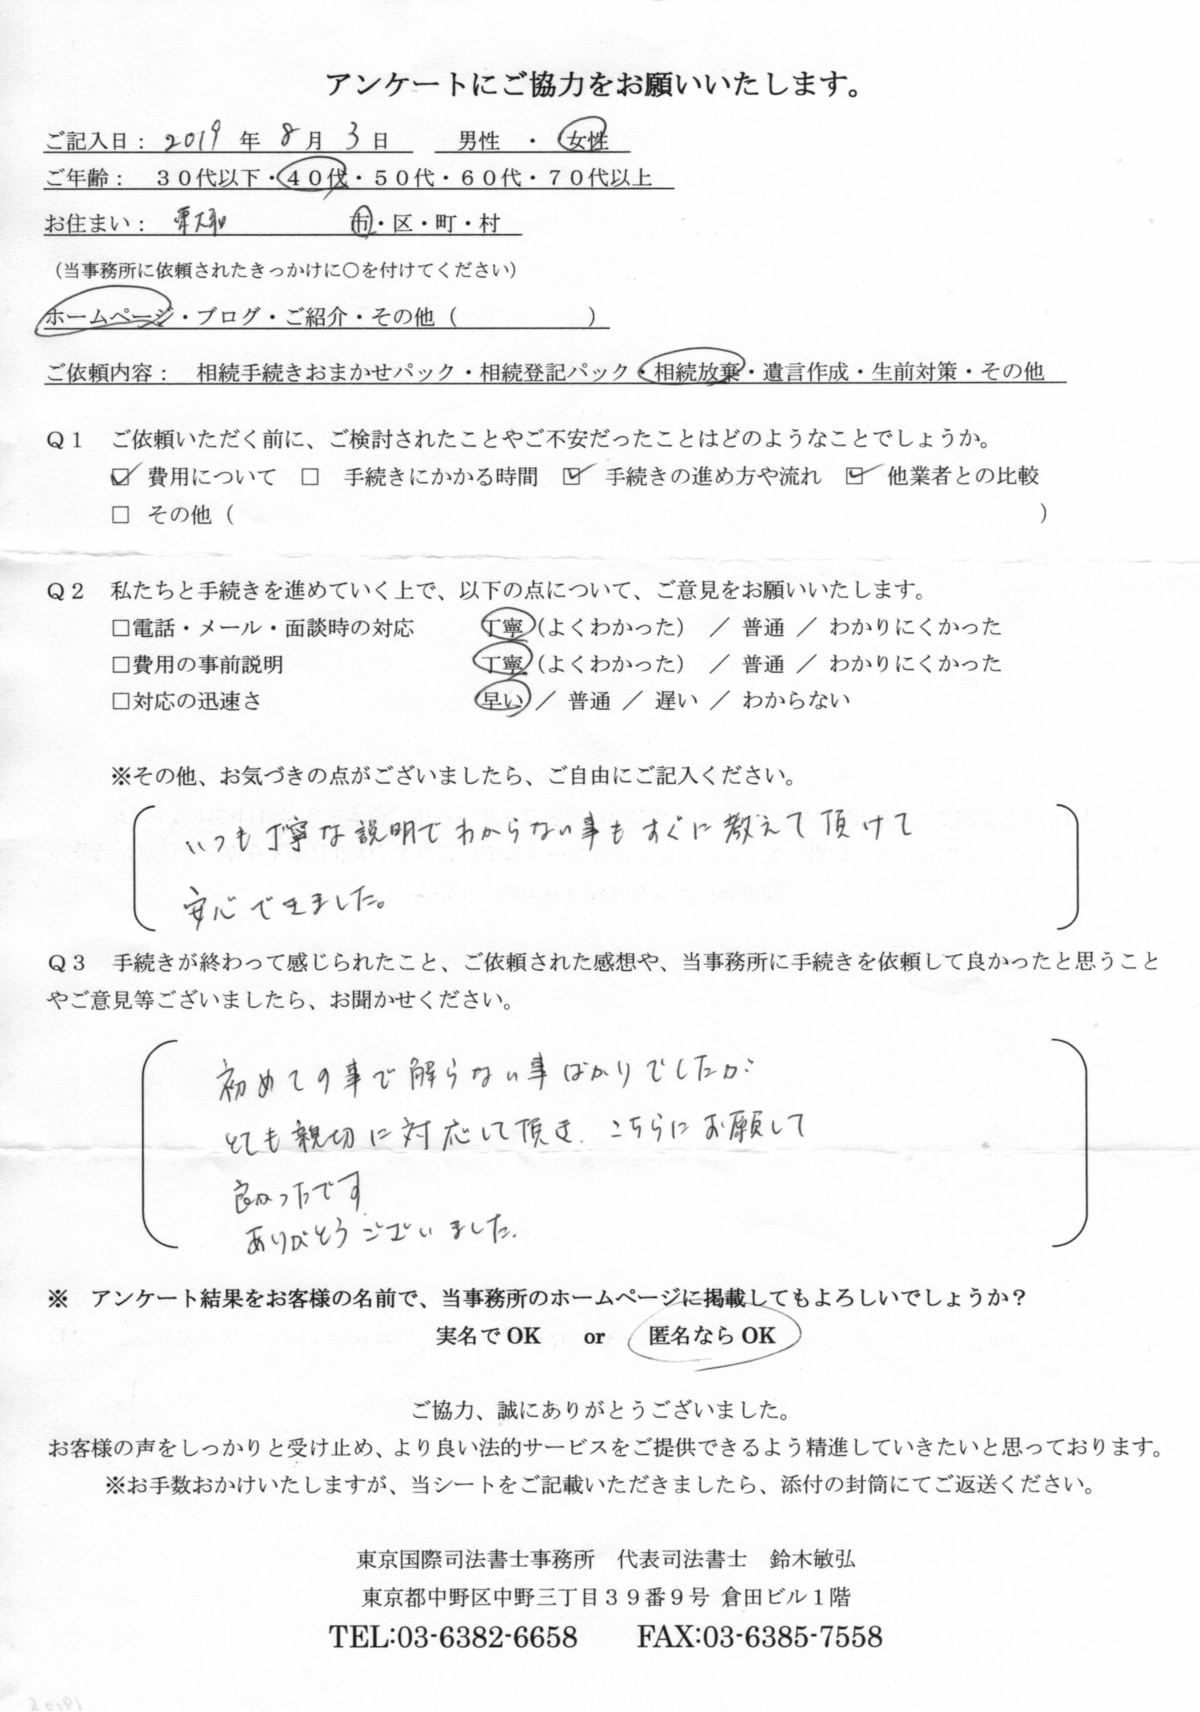 アンケートにご協力をお願いいたします。
ご記入日： 2019 年 8 月 3 日　男性 ・ 女性
ご年齢：　３０代以下・４０代・５０代・６０代・７０代以上
お住まい： 東大和 市・区・町・村
（当事務所に依頼されたきっかけに〇を付けてください）
ホームページ・ブログ・ご紹介・その他（　　　　　　）
ご依頼内容：　相続手続きおまかせパック・相続登記パック・相続放棄・遺言作成・生前対策・その他
Ｑ１　ご依頼いただく前に、ご検討されたことやご不安だったことはどのようなことでしょうか。
☑ 費用について　□　手続きにかかる時間　☑　手続きの進め方や流れ　☑　他業者との比較
□ その他（　　　　　　）
Ｑ２　私たちと手続きを進めていく上で、以下の点について、ご意見をお願いいたします。
□電話・メール・面談時の対応　丁寧（よくわかった） ／ 普通 ／ わかりにくかった
□費用の事前説明　丁寧（よくわかった） ／ 普通 ／ わかりにくかった
□対応の迅速さ　早い ／ 普通 ／ 遅い ／ わからない
※その他、お気づきの点がございましたら、ご自由にご記入ください。
いつも丁寧な説明でわからない事もすぐに教えて頂けて
安心できました。
Ｑ３　手続きが終わって感じられたこと、ご依頼された感想や、当事務所に手続きを依頼して良かったと思うこと
やご意見等ございましたら、お聞かせください。
初めての事で解らない事ばかりでしたが
とても親切に対応して頂き、こちらにお願して
良かったです
ありがとうございました。
※　アンケート結果をお客様の名前で、当事務所のホームページに掲載してもよろしいでしょうか？
実名で OK　or　匿名なら OK
ご協力、誠にありがとうございました。
お客様の声をしっかりと受け止め、より良い法的サービスをご提供できるよう精進していきたいと思っております。
※お手数おかけいたしますが、当シートをご記載いただきましたら、添付の封筒にてご返送ください。
東京国際司法書士事務所　代表司法書士　鈴木敏弘
東京都中野区中野三丁目３９番９号 倉田ビル１階
TEL:03-6382-6658　FAX:03-6385-7558